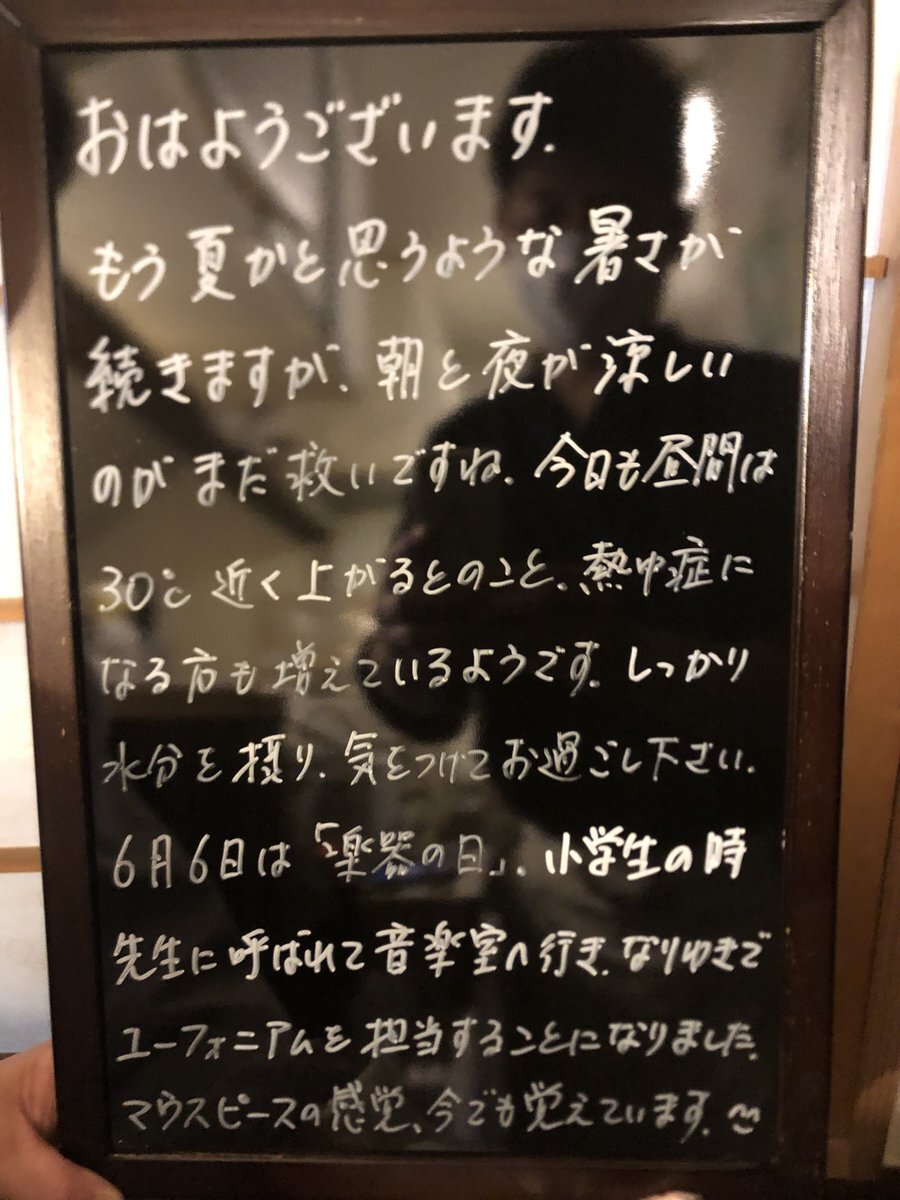 おはようございます.
もう夏かと思うような暑さが
続きますが、朝と夜が涼しい
のがまだ救いですね. 今日も昼間は
30℃近く上がるとのこと、熱中症に
なる方も増えているようです. しっかり
水分を摂り、気をつけてお過ごし下さい.
6月6日は「楽器の日」. 小学生の時
先生に呼ばれて音楽室へ行き、なりゆきで
ユーフォニアムを担当することになりました.
マウスピースの感覚、今でも覚えています.